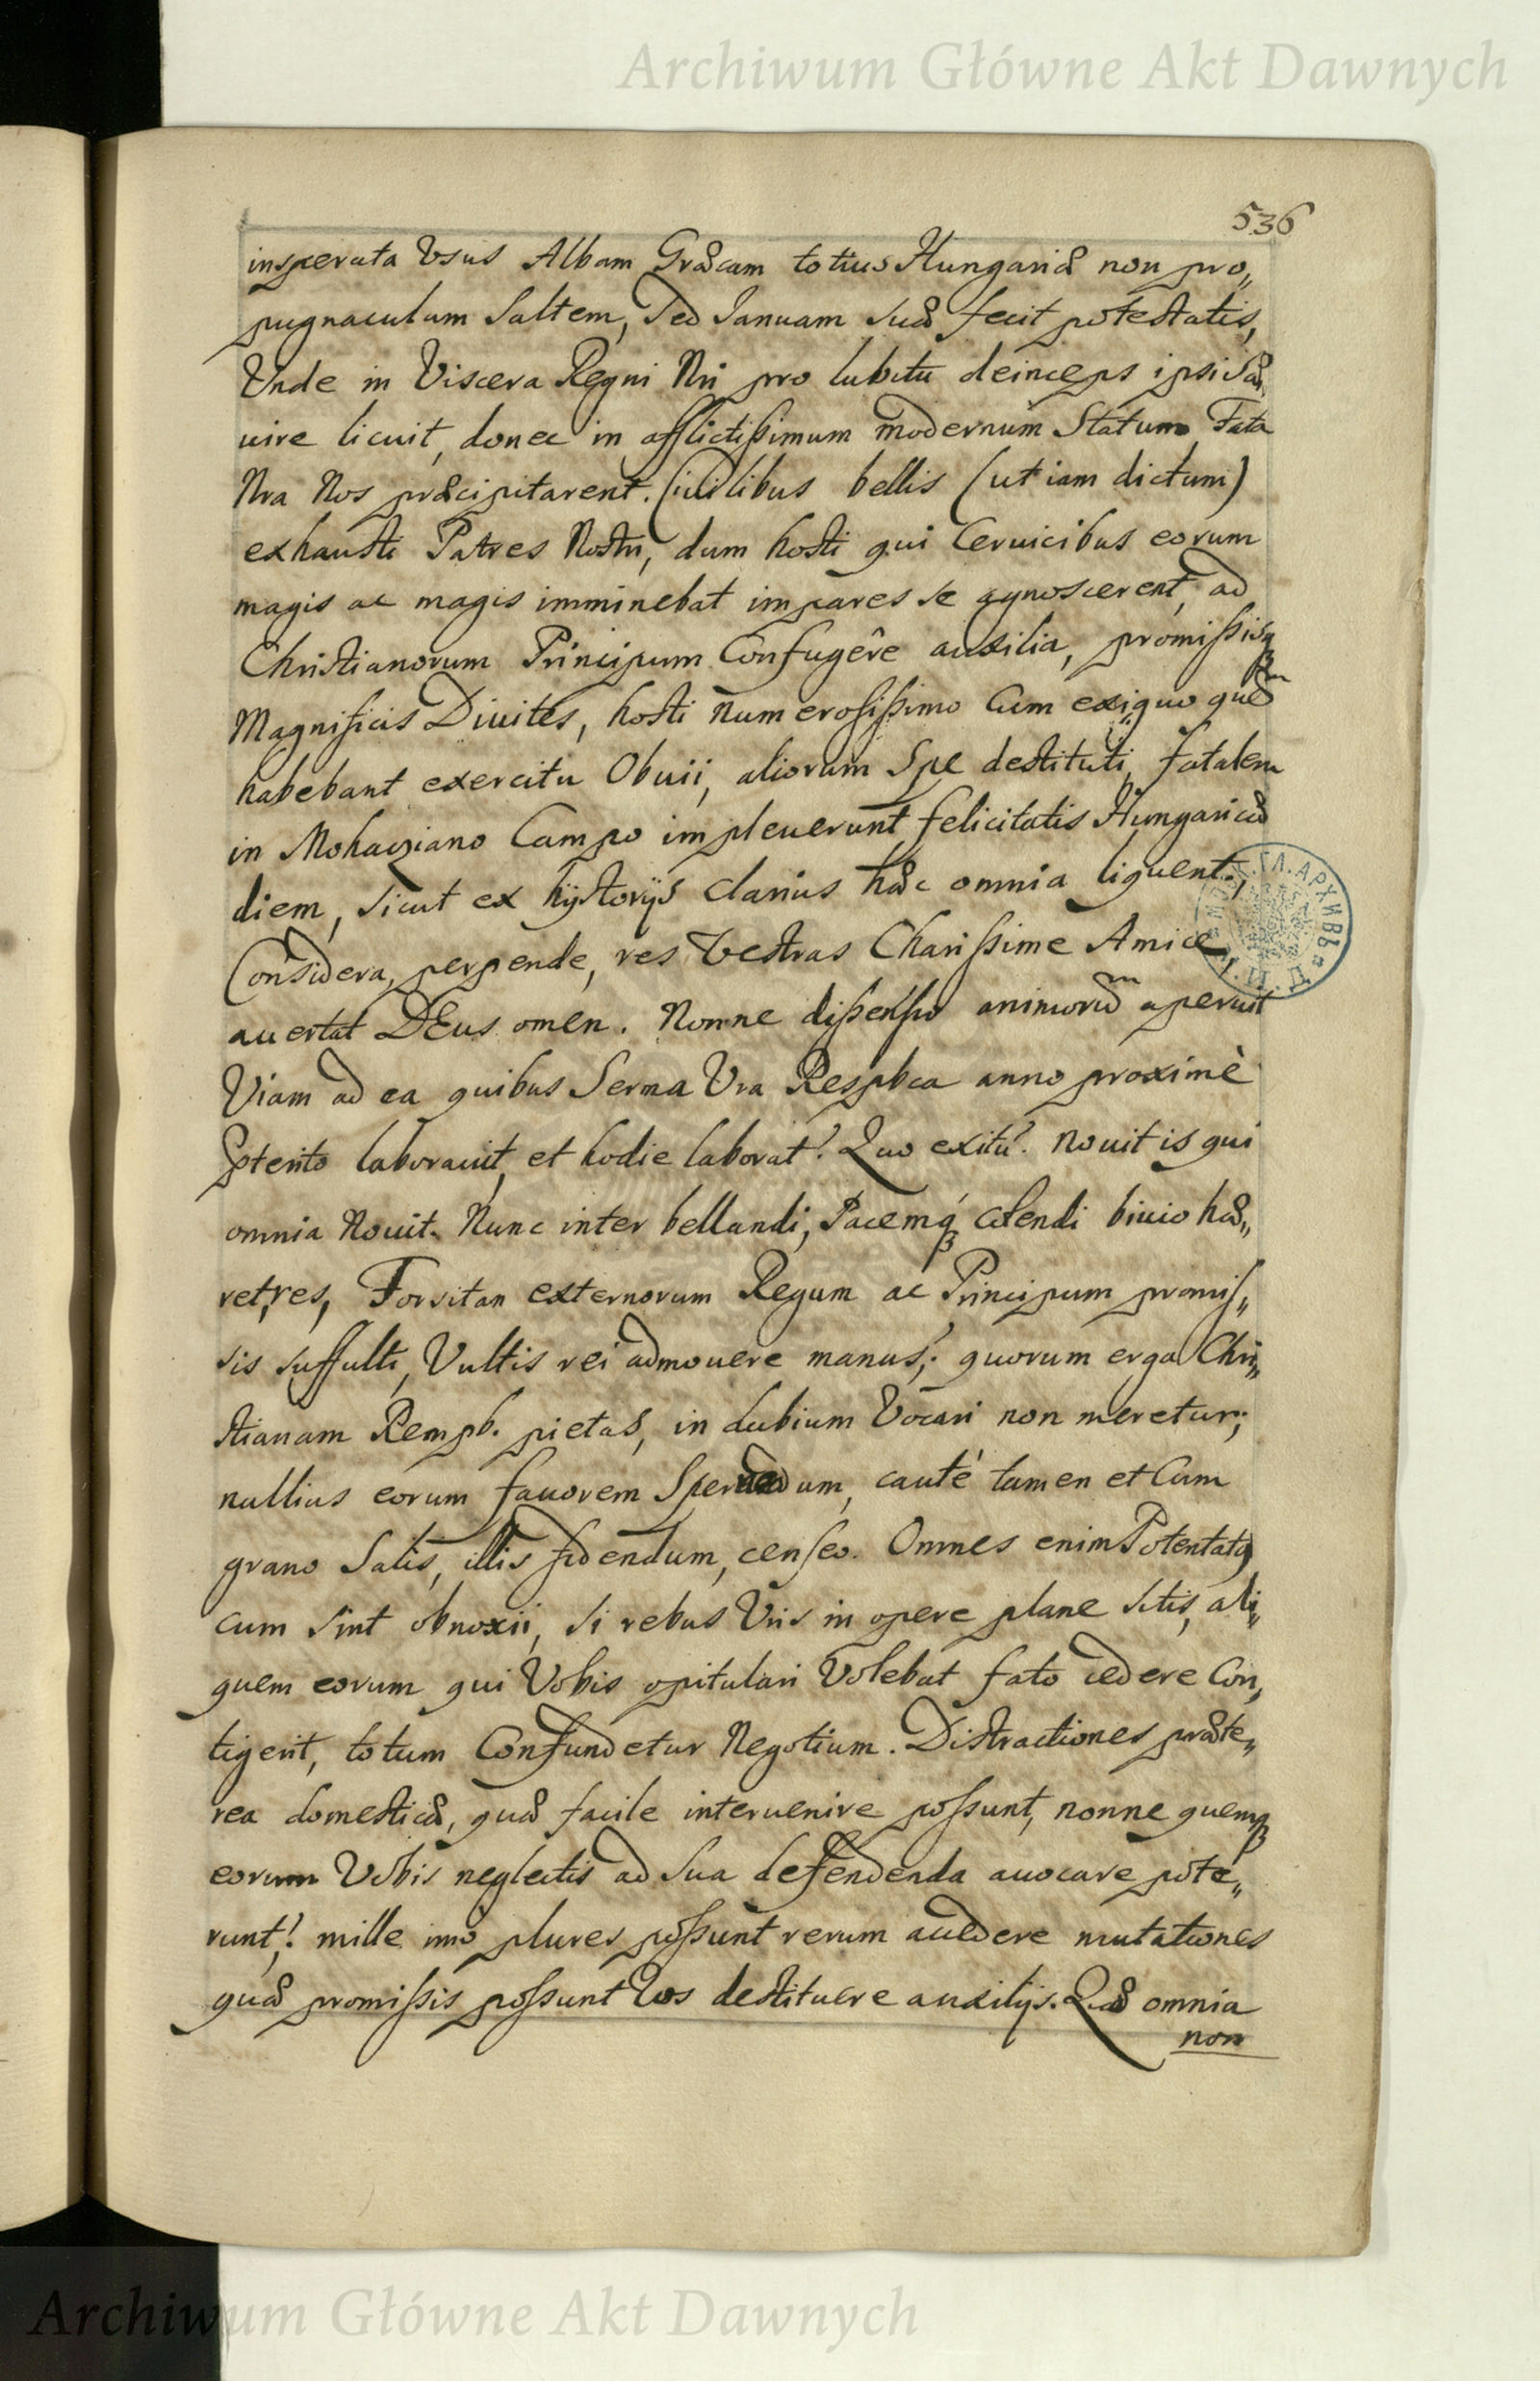 Archiwum Główne Akt Dawnych
536
insperata Vsus Albam Græcam totius Hungariæ non pro„
pugnaculum Saltem, Sed Ianuam suæ fecit potestatis,
Vnde in Viscera Regni Nri pro lubitu deinceps ipsi sæ„
uire licuit, donec in afflictißimum modernum Statum Fata
Nra Nos præcipitarent. Ciuilibus bellis (ut iam dictum)
exhausti Patres Nostri, dum hosti qui Ceruicibus eorum
magis ac magis imminebat impares se agnoscerent, ad
Christianorum Principum Confugêre auxilia, promißisq
Magnificis Diuites, hosti numerosißimo Cum exiguo quem
habebant exercitu Obuii, aliorum Spe destituti, fatalem
in Mohacziano Campo impleuerunt felicitatis Hungaricæ
diem, sicut ex hystorijs clarius hæc omnia liquent.,
Considera, perpende, res Vestras Charißime Amice,
auertat DEus omen. Nonne dißensio animorum aperuit
Viam ad ea quibus Serma Vra Respbca anno proximè
Ppterito laborauit, et hodie laborat? Quo exitu? nouit is qui
omnia Nouit. Nunc inter bellandi, Pacemq colendi biuio hæ„
ret, res, Forsitan externorum Regum ac Principum promis„
sis suffulti, Vultis rei admouere manus; quorum erga Chri„
stianam Rempb. pietas, in dubium Vocari non meretur;
nullius eorum fauorem Spernendum, cautè tamen et Cum
grano Salis, illis fidendum, censeo. Omnes enim Potentatus
cum sint obnoxii, si rebus Vris in opere plane sitis, ali„
quem eorum qui Vobis opitulari Volebat fato cedere Con„
tigerit, totum Confundetur Negotium. Distractiones præte„
rea domesticæ, quæ facile interuenire poßunt, nonne quemq
eorum Vobis neglectis ad sua defendenda auocare pote„
runt? mille imo plures poßunt rerum accedere mutationes
quæ promißis poßunt Vos destituere auxilijs. Quæ omnia
non
Archiwum Główne Akt Dawnych